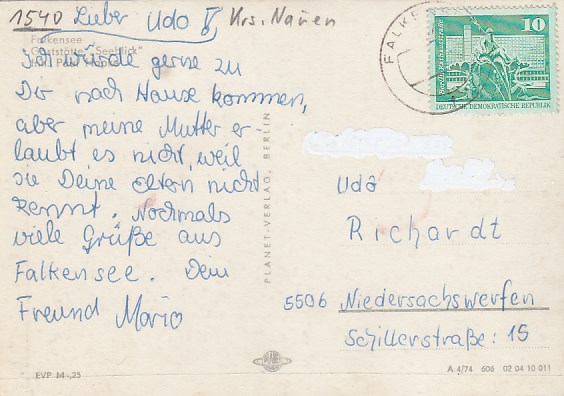 1540 Lieber Udo V Krs. Nauen
Falkensee
Gaststätte "Seeblick"
Ich würde gerne zu
Dir nach Hause kommen,
aber meine Mutter er-
laubt es nicht, weil
sie Deine Eltern nicht
kennt. Nochmals
viele Grüße aus
Falkensee. Dein
Freund Mario
EVP M -,25
PLANET-VERLAG, BERLIN
PLANET
FALKE
10
DEUTSCHE DEMOKRATISCHE REPUBLIK
Udo
Richardt
5506 Niedersachswerfen
Schillerstraße: 15
A 4/74 606 02 04 10 011